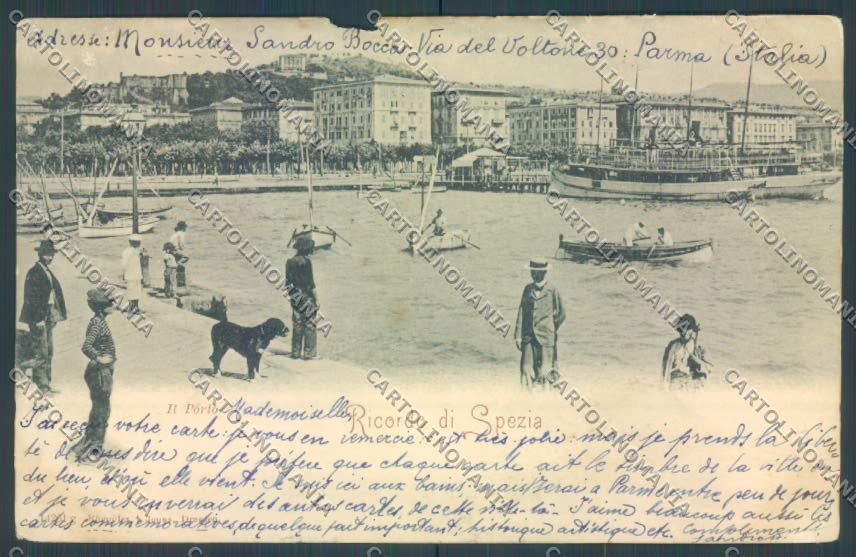 Adresse: Monsieur Sandro Bocca Via del Voltone 30: Parma (Italia)
Il Porto
Ricordo di Spezia
Mademoiselle,
J'ai reçu votre carte: je vous en remercie: est très jolie: mais je prends la liber
té de vous dire que je préfère que chaque carte ait le timbre de la ville ou
du lieu, d'où elle vient. Je suis ici aux bains, mais serai à Parme entre peu de jours
et je vous enverrai des autres cartes de cette ville-là. J'aime beaucoup aussi les
cartes commémoratives, de quelque fait important, historique artistique etc. Compliments
CARTOLINOMANIA.COM